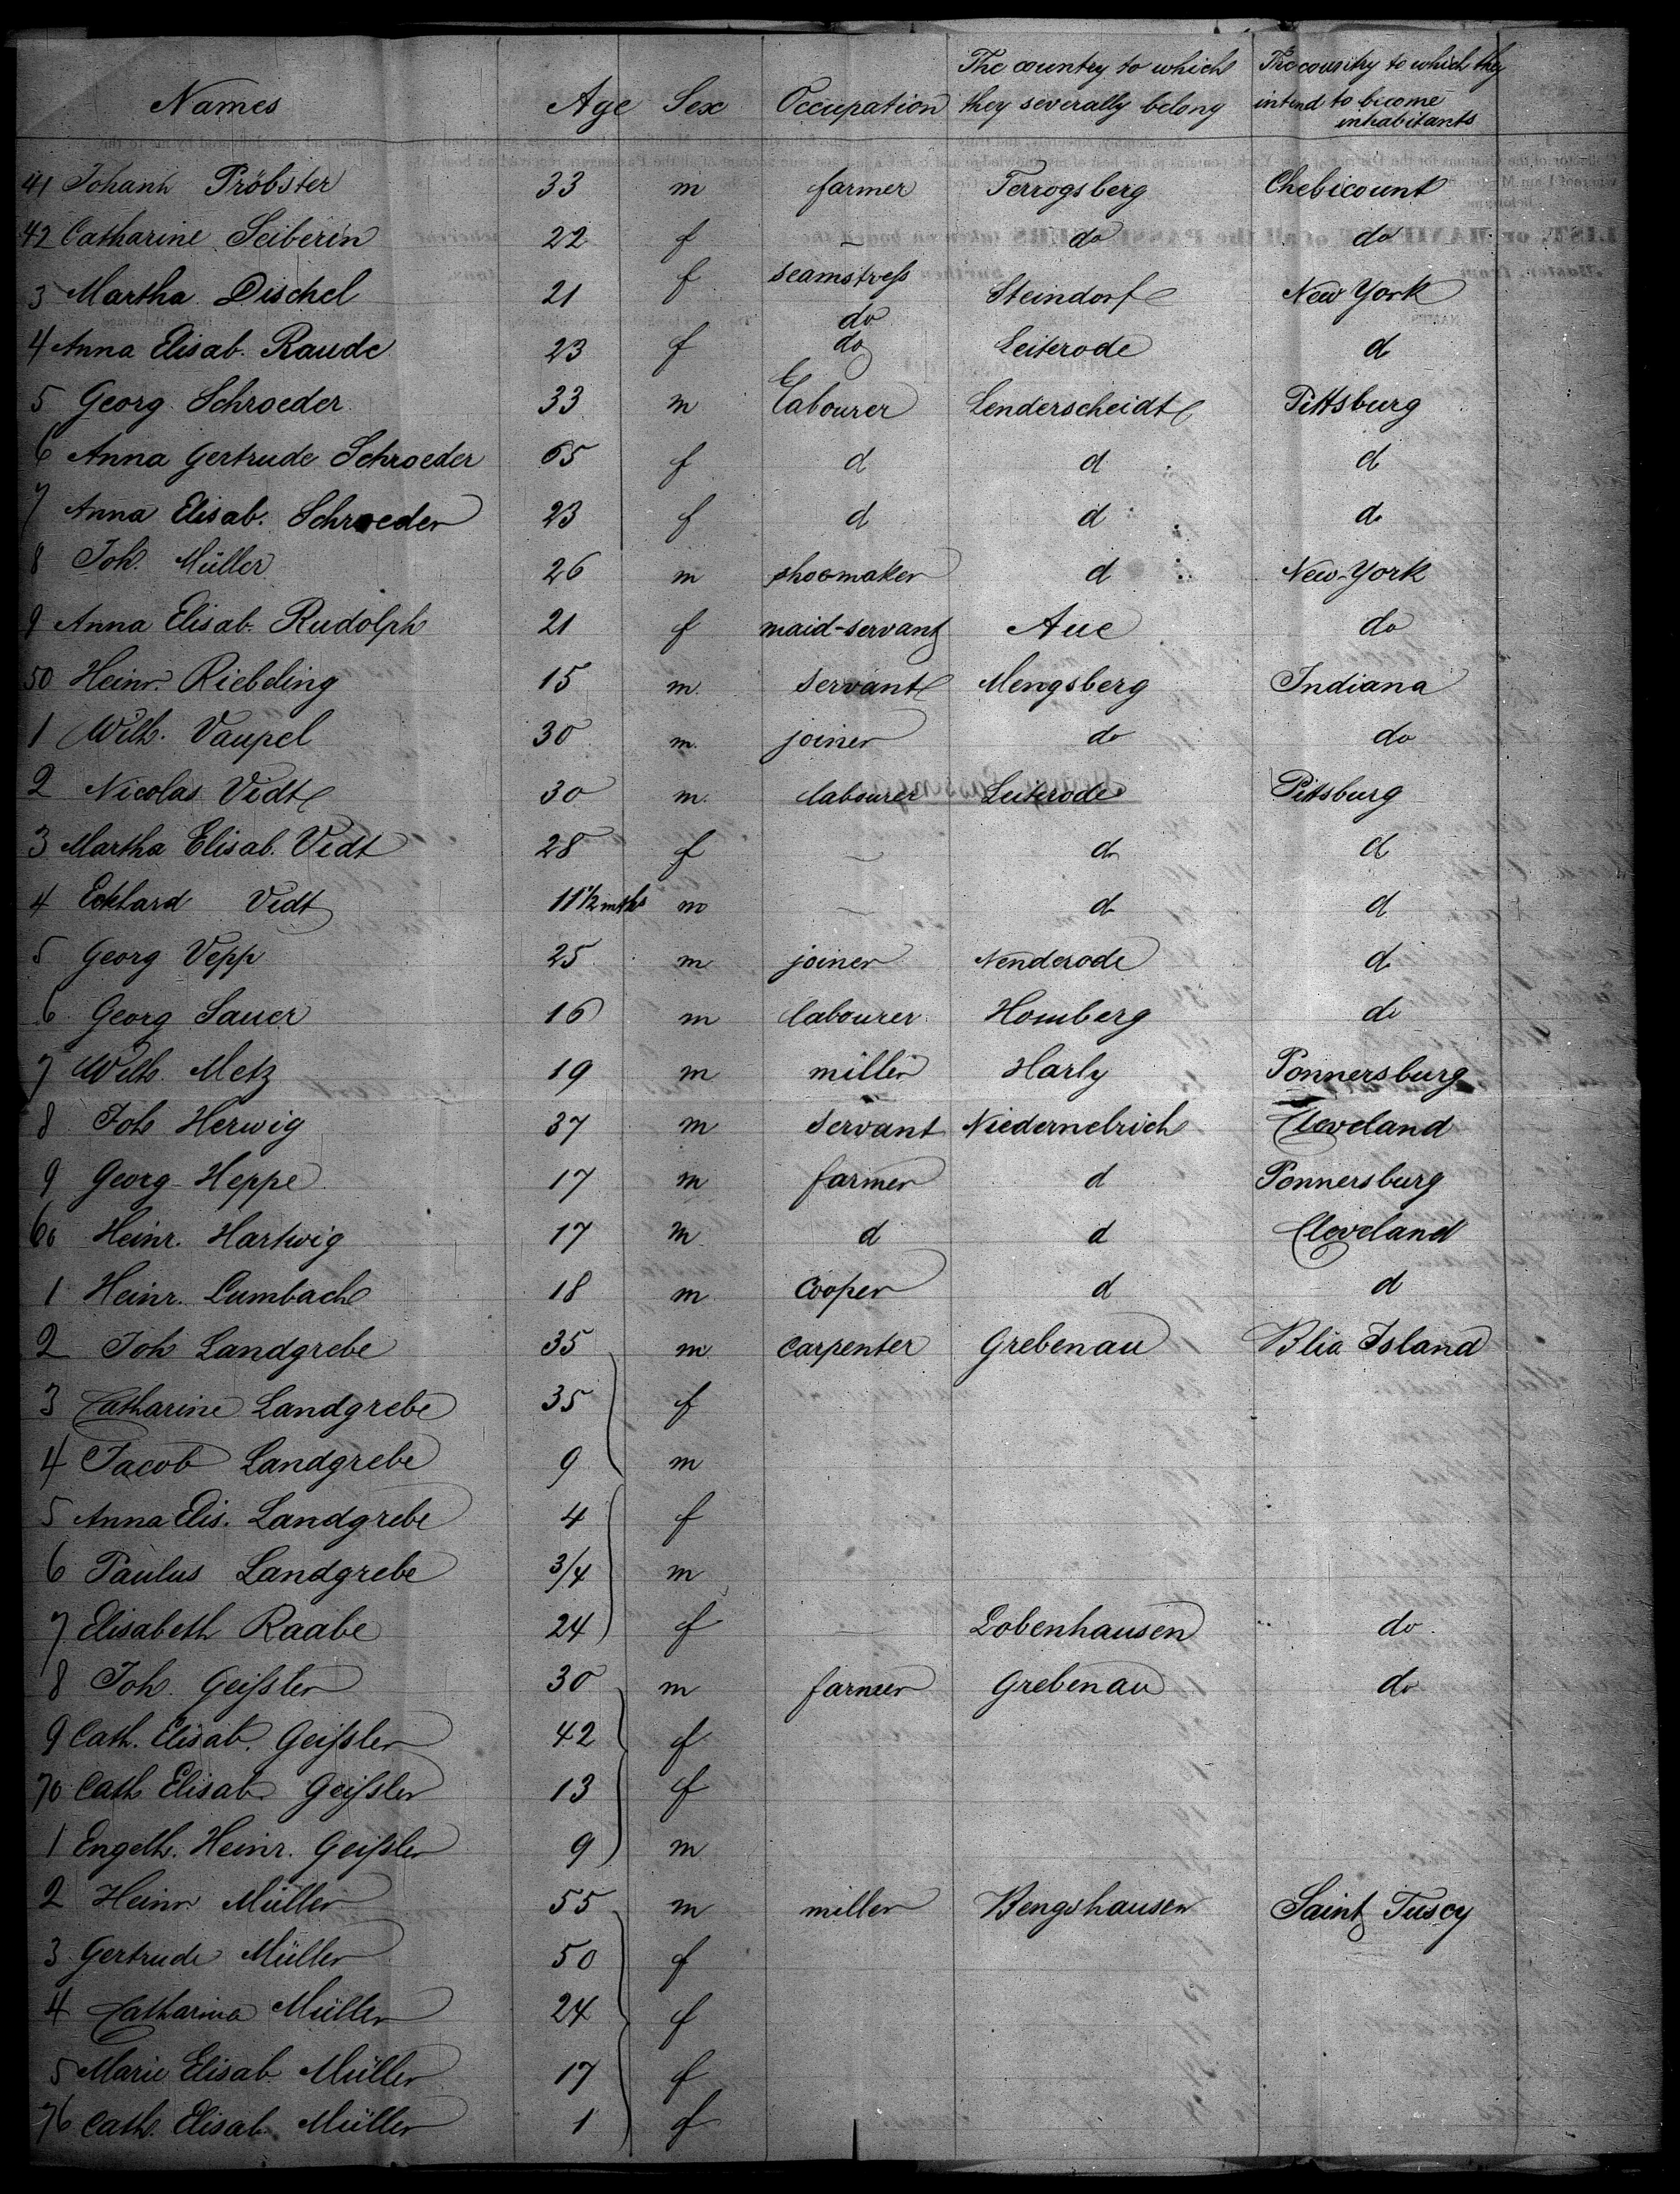 Names Age Sex Occupation The country to which they severally belong The country to which they intend to become inhabitants
41 Johann Pröbster 33 m farmer Terrogsberg Chebicount
42 Catharine Seiberin 22 f – do do
3 Martha Dischel 21 f seamstress Steindorf New York
do
4 Anna Elisab. Raude 23 f do Leiterode d
5 Georg Schroeder 33 m labourer Lenderscheidt Pittsburg
6 Anna Gertrude Schroeder 65 f d d d
7 Anna Elisab. Schroeder 23 f d d do
8 Joh. Müller 26 m shoemaker d New-York
9 Anna Elisab. Rudolph 21 f maid-servant Aue do
50 Heinr. Riebeling 15 m. servant Mengsberg Indiana
1 Wilh. Vaupel 30 m. joiner do do
2 Nicolas Vidt 30 m. labourer Leiterode Pittsburg
3 Martha Elisab. Vidt 28 f – do d
4 Eckhard Vidt 11 1/2 mths m – d d
5 Georg Vepp 25 m joiner Nenderode d
6 Georg Sauer 16 m labourer Homberg do
7 Wilh. Metz 19 m miller Harly Ponnersburg
8 Joh Herwig 37 m servant Niedernelrich Cleveland
9 Georg Heppe 17 m farmer d Ponnersburg
60 Heinr. Hartwig 17 m d d Cleveland
1 Heinr. Lumbach 18 m cooper d d
2 Joh Landgrebe 35 m carpenter Grebenau Blia Island
3 Catharine Landgrebe 35 f
4 Jacob Landgrebe 9 m
5 Anna Elis. Landgrebe 4 f
6 Paulus Landgrebe 3/4 m
7 Elisabeth Raabe 24 f – Lobenhausen do
8 Joh. Geißler 30 m farmer Grebenau do
9 Cath. Elisab. Geißler 42 f
70 Cath Elisab. Geißler 13 f
1 Engelh. Heinr. Geißler 9 m
2 Heinr Müller 55 m miller Bengshausen Saint Tuscy
3 Gertrude Müller 50 f
4 Catharina Müller 24 f
5 Marie Elisab. Müller 17 f
76 Cath. Elisab. Müller 1 f